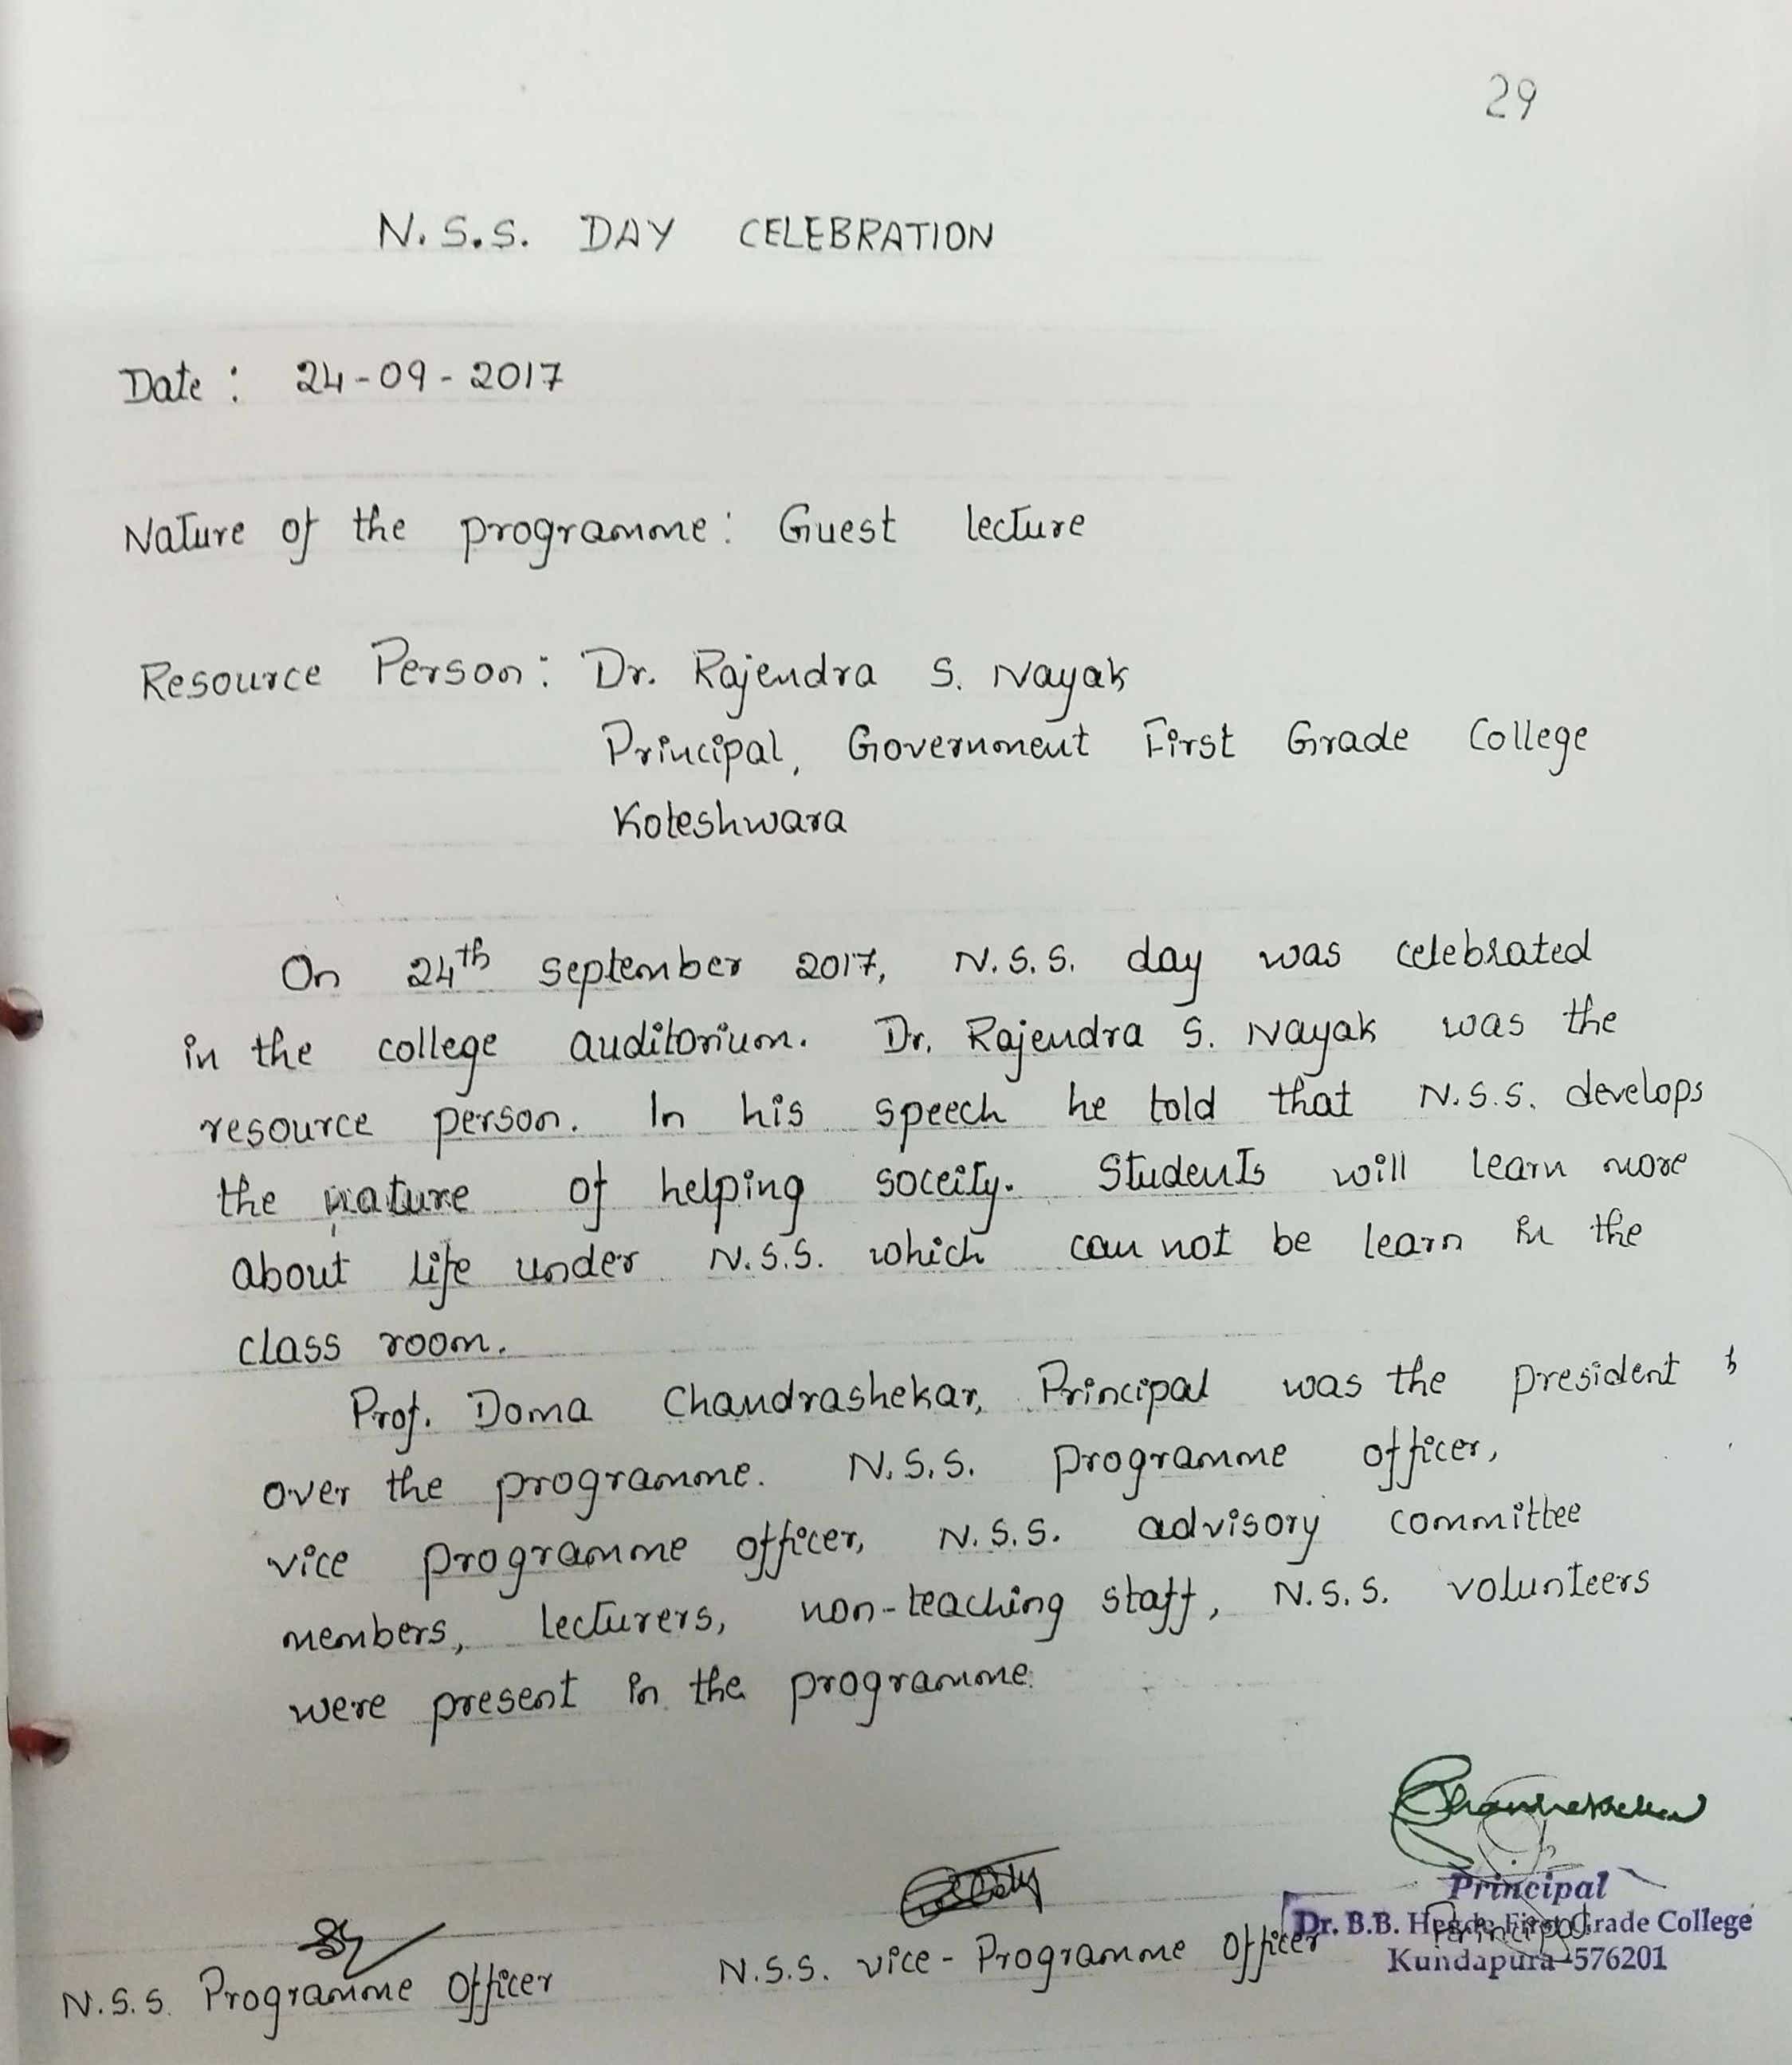 29
N.S.S. DAY CELEBRATION
Date : 24-09-2017
Nature of the programme: Guest lecture
Resource Person: Dr. Rajendra S. Nayak
Principal, Government First Grade College
Koteshwara
On 24th september 2017, N.S.S. day was celebrated
in the college auditorium. Dr. Rajendra S. Nayak was the
resource person. In his speech he told that N.S.S. develops
the nature of helping soceity. Students will learn more
about life under N.S.S. which can not be learn in the
class room.
Prof. Doma Chandrashekar, Principal was the president
over the programme. N.S.S. programme officer,
vice programme officer, N.S.S. advisory committee
members, lecturers, non-teaching staff, N.S.S. volunteers
were present in the programme.
Principal
Dr. B.B. Hegde First Grade College
Kundapura-576201
Principal
N.S.S. vice-Programme Officer
N.S.S. Programme Officer